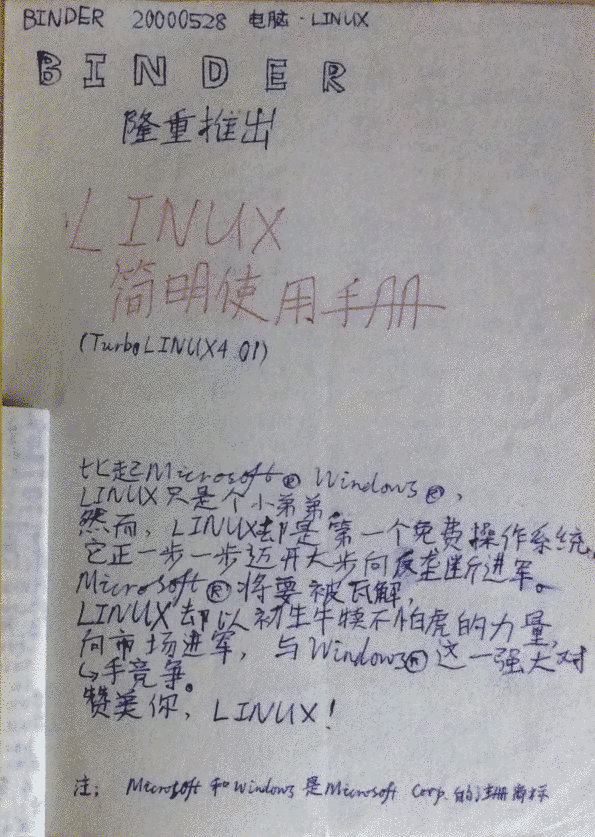 BINDER 20000528 电脑·LINUX
BINDER
隆重推出
LINUX
简明使用手册
(TurboLINUX4.01)
比起Microsoft® Windows®,
LINUX只是个小弟弟。
然而，LINUX却是第一个免费操作系统,
它正一步一步迈开大步向反垄断行进军。
Microsoft®将要被瓦解,
LINUX却以初生牛犊不怕虎的力量,
向市场进军，与Windows®这一强大对
↳手竞争。
赞美你，LINUX!
注： Microsoft和Windows是Microsoft Corp.的注册商标